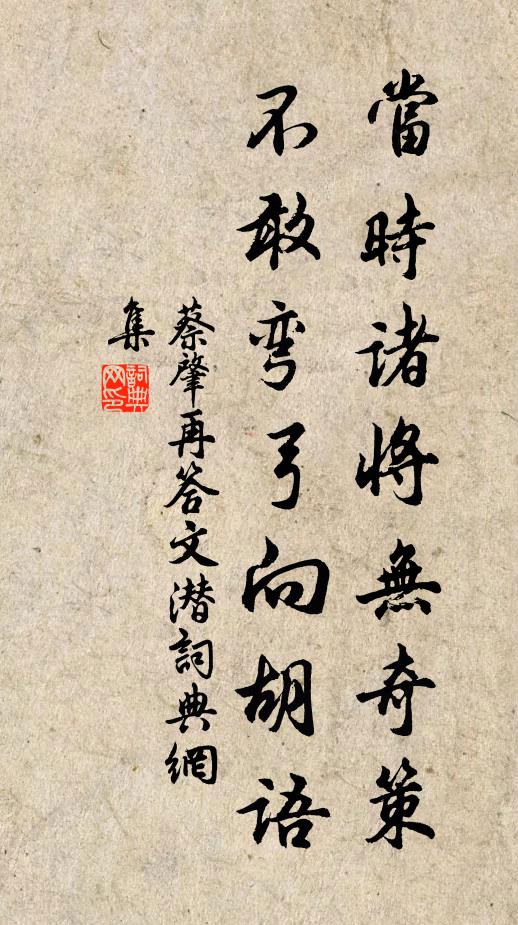 當時諸將無奇策
不敢彎弓向胡語
蔡肇再答文潛詞典網
集
詞典
网印